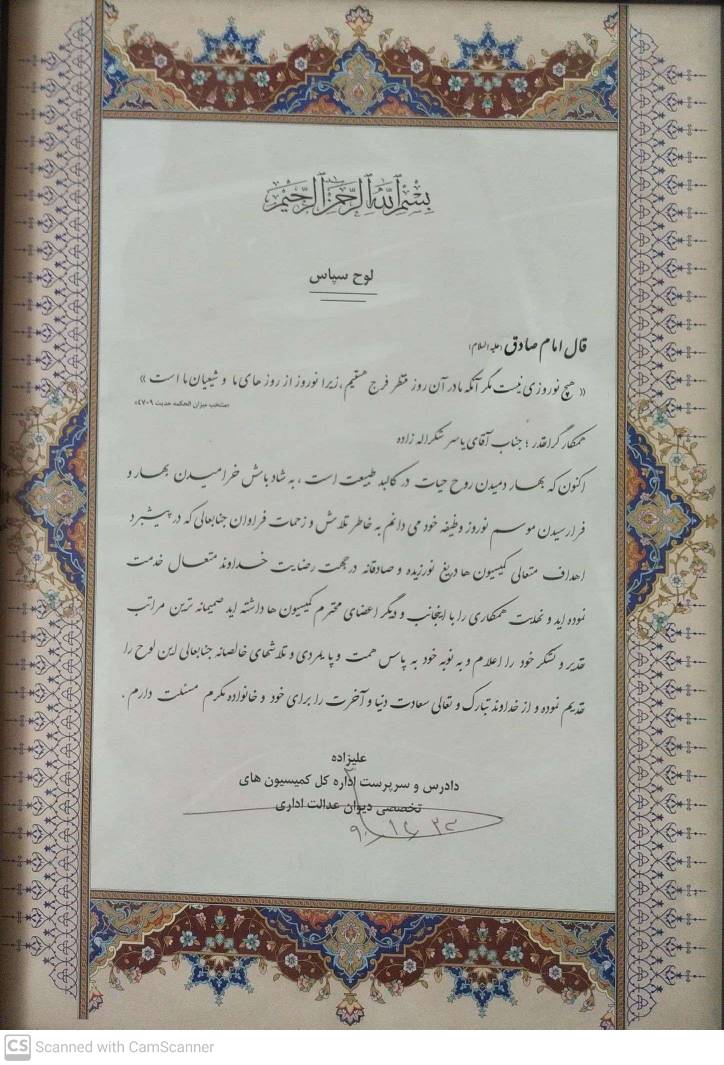 بسم الله الرحمن الرحیم
لوح سپاس
قال امام صادق (علیه السلام)
« هیچ نوروزی نیست مگر آنکه ما در آن روز منتظر فرج هستیم، زیرا نوروز از روزهای ما و شیعیان ما است »
«منتخب میزان الحکمه حدیث ۴۷۰۹»
همکار گرانقدر ؛ جناب آقای یاسر شکراله زاده
اکنون که بهار دمیدن روح حیات در کالبد طبیعت است ، به شادباش خرامیدن بهار و
فرارسیدن موسم نوروز وظیفه خود می دانم به خاطر تلاش و زحمات فراوان جنابعالی که در پیشبرد
اهداف متعالی کمیسیون ها دریغ نورزیده و صادقانه در جهت رضایت خداوند متعال خدمت
نموده اید و نهایت همکاری را با اینجانب و دیگر اعضای محترم کمیسیون ها داشته اید صمیمانه ترین مراتب
تقدیر و تشکر خود را اعلام و به نوبه خود به پاس همت و پایمردی و تلاشهای خالصانه جنابعالی این لوح را
تقدیم نموده و از خداوند تبارک و تعالی سعادت دنیا و آخرت را برای خود و خانواده مکرم مسئلت دارم .
علیزاده
دادرس و سرپرست اداره کل کمیسیون های
تخصصی دیوان عدالت اداری
CS Scanned with CamScanner